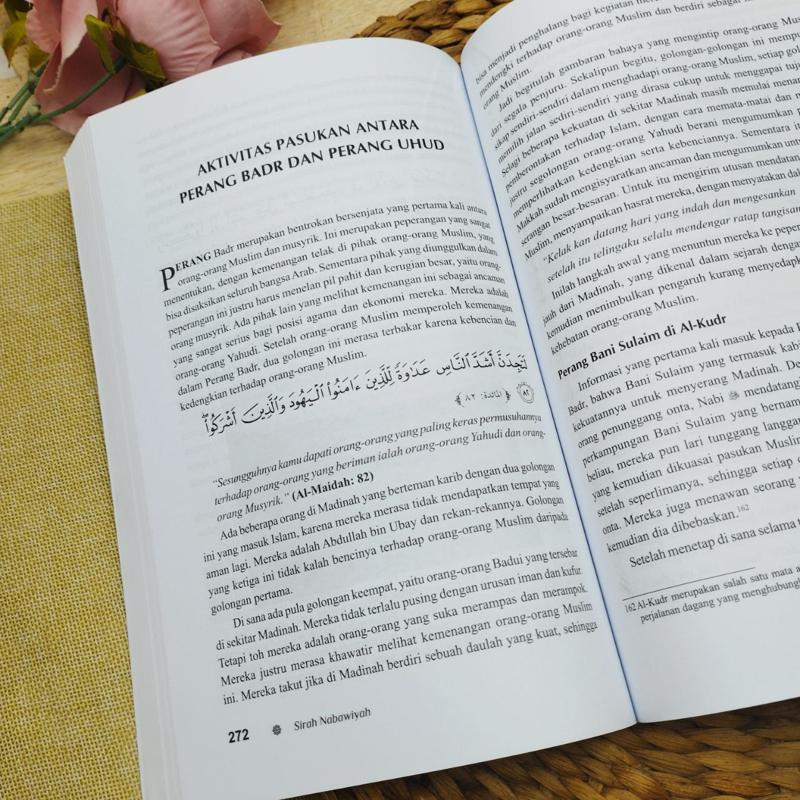 AKTIVITAS PASUKAN ANTARA
PERANG BADR DAN PERANG UHUD
PERANG Badr merupakan bentrokan bersenjata yang pertama kali antara
orang-orang Muslim dan musyrik. Ini merupakan peperangan yang sangat
menentukan, dengan kemenangan telak di pihak orang-orang Muslim, yang
bisa disaksikan seluruh bangsa Arab. Sementara pihak yang diunggulkan dalam
peperangan ini justru harus menelan pil pahit dan kerugian besar, yaitu orang-
orang musyrik. Ada pihak lain yang melihat kemenangan ini sebagai ancaman
yang sangat serius bagi posisi agama dan ekonomi mereka. Mereka adalah
orang-orang Yahudi. Setelah orang-orang Muslim memperoleh kemenangan
dalam Perang Badr, dua golongan ini merasa terbakar karena kebencian dan
kedengkian terhadap orang-orang Muslim.
لَتَجِدَنَّ أَشَدَّ النَّاسِ عَدَاوَةً لِّلَّذِينَ ءَامَنُوا الْيَهُودَ وَالَّذِينَ أَشْرَكُوا
﴿المائدة: ٨٢﴾ ٨٢
"Sesungguhnya kamu dapati orang-orang yang paling keras permusuhannya
terhadap orang-orang yang beriman ialah orang-orang Yahudi dan orang-
orang Musyrik." (Al-Maidah: 82)
Ada beberapa orang di Madinah yang berteman karib dengan dua golongan
ini yang masuk Islam, karena mereka merasa tidak mendapatkan tempat yang
aman lagi. Mereka adalah Abdullah bin Ubay dan rekan-rekannya. Golongan
yang ketiga ini tidak kalah bencinya terhadap orang-orang Muslim daripada
golongan pertama.
Di sana ada pula golongan keempat, yaitu orang-orang Badui yang tersebar
di sekitar Madinah. Mereka tidak terlalu pusing dengan urusan iman dan kufur.
Tetapi toh mereka adalah orang-orang yang suka merampas dan merampok.
Mereka justru merasa khawatir melihat kemenangan orang-orang Muslim
ini. Mereka takut jika di Madinah berdiri sebuah daulah yang kuat, sehingga
272 Sirah Nabawiyah
bisa menjadi penghalang bagi kegiatan
mendengki terhadap orang-orang Muslim dan berdiri sebagai
orang Muslim.
Jadi begitulah gambaran bahaya yang mengintip orang-orang
dari segala penjuru. Sekalipun begitu, golongan-golongan ini
sikap sendiri-sendiri dalam menghadapi orang-orang Muslim, setiap
memilih jalan sediri-sendiri yang dirasa cukup untuk menggapai
Selagi beberapa kekuatan di sekitar Madinah masih memulai
pemberontakan terhadap Islam, dengan cara memata-matai dan
justru segolongan orang-orang Yahudi berani mengumumkan
memperlihatkan kedengkian serta kebenciannya. Sementara
Makkah sudah mengisyaratkan ancaman dan mengumumkan
serangan besar-besaran. Untuk itu mengirim utusan mendatangi
Muslim, menyampaikan hasrat mereka, dengan menyatakan
"Kelak kan datang hari yang indah dan mengesankan
setelah itu telingaku selalu mendengar ratap tangisan
Inilah langkah awal yang menuntun mereka ke
jauh dari Madinah, yang dikenal dalam sejarah dengan
kemudian menimbulkan pengaruh kurang menyedapkan
kehebatan orang-orang Muslim.
Perang Bani Sulaim di Al-Kudr
Informasi yang pertama kali masuk kepada
Badr, bahwa Bani Sulaim yang termasuk
kekuatannya untuk menyerang Madinah.
orang penunggang onta, Nabi ﷺ mendatangi
perkampungan Bani Sulaim yang bernama
beliau, mereka pun lari tunggang langgang
yang kemudian dikuasai pasukan Muslim
setelah seperlimanya, sehingga setiap
onta. Mereka juga menawan seorang
kemudian dia dibebaskan.162
Setelah menetap di sana selama
162 Al-Kudr merupakan salah satu mata
perjalanan dagang yang menghubungkan